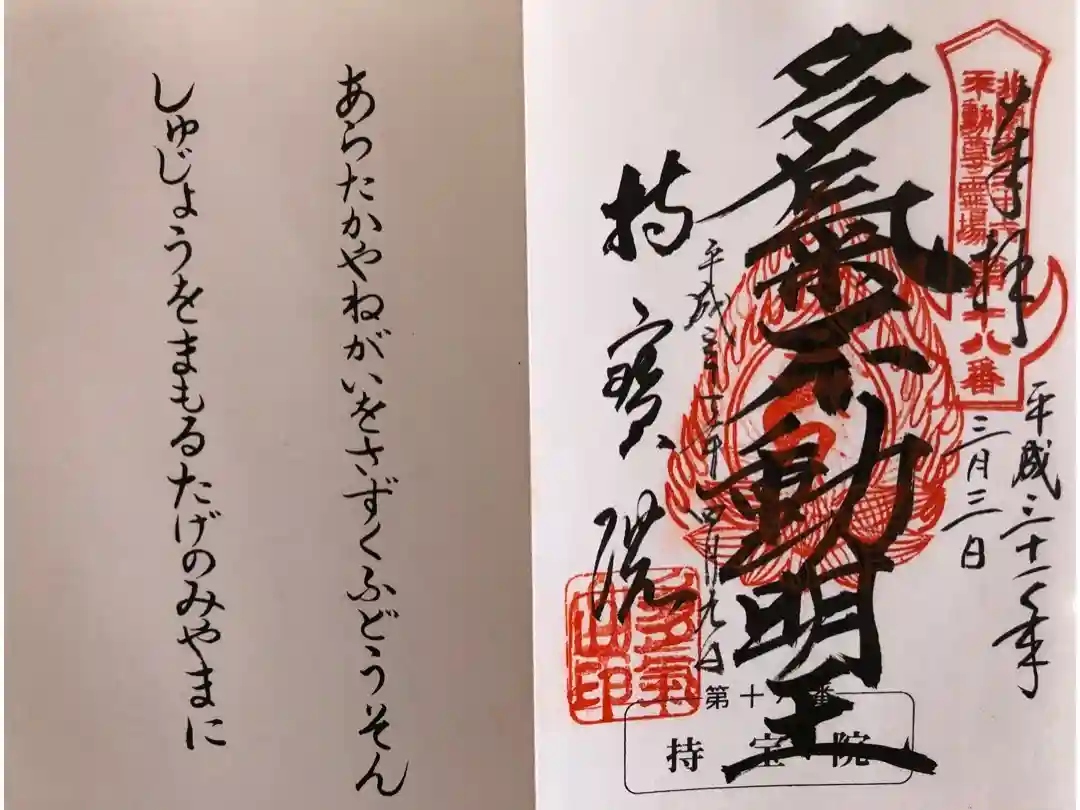 奉拝
北関東三十六
不動尊霊場
第十八番
平成三十一年
三月三日
多氣不動明王
平成三十一年四月九日
持寳院
多氣
山印
第十八番
持宝院
あらたかやねがいをさずくふどうそん
しゅじょうをまもるたげのみやまに